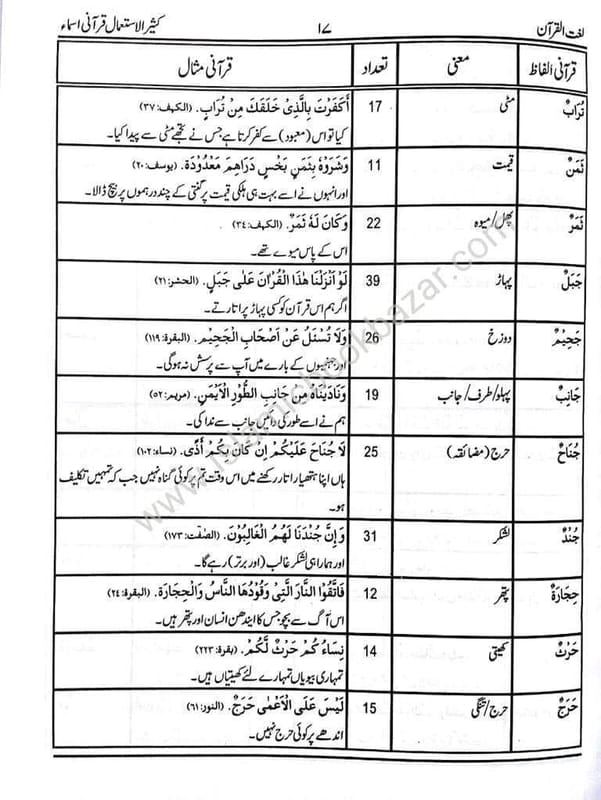 لغت القرآن ۱۷ کثیر الاستعمال قرآنی اسماء
قرآنی الفاظ معنی تعداد قرآنی مثال
تُرَابٌ مٹی 17 أَكَفَرْتَ بِالَّذِیْ خَلَقَكَ مِنْ تُرَابٍ. (الکهف: ۳۷)
کیا تو اس (معبود) سے کفر کرتا ہے جس نے تجھے مٹی سے پیدا کیا۔
ثَمَنٌ قیمت 11 وَشَرَوْهُ بِثَمَنٍ بَخْسٍ دَرَاهِمَ مَعْدُوْدَةٍ. (یوسف: ۲۰)
اور انہوں نے اسے بہت ہی ہلکی قیمت پر گنتی کے چند درہموں پر بیچ ڈالا۔
ثَمَرٌ پھل/میوہ 22 وَكَانَ لَهٗ ثَمَرٌ. (الکهف: ۳۴)
اس کے پاس میوے تھے۔
جَبَلٌ پہاڑ 39 لَوْ اَنْزَلْنَا هٰذَا الْقُرْاٰنَ عَلٰى جَبَلٍ. (الحشر: ۲۱)
اگر ہم اس قرآن کو کسی پہاڑ پر اتارتے۔
جَحِیْمٌ دوزخ 26 وَلَا تُسْئَلُ عَنْ اَصْحَابِ الْجَحِیْمِ. (البقرة: ۱۱۹)
اور جہنمیوں کے بارے میں آپ سے پرسش نہ ہوگی۔
جَانِبٌ پہلو/طرف/جانب 19 وَنَادَیْنَاهُ مِنْ جَانِبِ الطُّوْرِ الْاَیْمَنِ. (مریم: ۵۲)
ہم نے اسے طور کی دائیں جانب سے ندا کی۔
جُنَاحٌ حرج (مضائقہ) 25 لَا جُنَاحَ عَلَیْكُمْ اِنْ كَانَ بِكُمْ اَذًى. (نساء: ۱۰۲)
ہاں اپنا ہتھیار اتار رکھنے میں اس وقت تم پر کوئی گناہ نہیں جب کہ تمہیں تکلیف
ہو۔
جُنْدٌ لشکر 31 وَاِنَّ جُنْدَنَا لَهُمُ الْغَالِبُوْنَ. (الصّٰفّت: ۱۷۳)
اور ہمارا ہی لشکر غالب (اور برتر) رہے گا۔
حِجَارَةٌ پتھر 12 فَاتَّقُوا النَّارَ الَّتِیْ وَقُوْدُهَا النَّاسُ وَالْحِجَارَةُ. (البقرة: ۲۴)
اس آگ سے بچو جس کا ایندھن انسان اور پتھر ہیں۔
حَرْثٌ کھیتی 14 نِسَاءُ كُمْ حَرْثٌ لَّكُمْ. (بقرة: ۲۲۳)
تمہاری بیویاں تمہارے لئے کھیتیاں ہیں۔
حَرَجٌ حرج/تنگی 15 لَیْسَ عَلَى الْاَعْمٰى حَرَجٌ. (النور: ۶۱)
اندھے پر کوئی حرج نہیں۔
www.islamicbookbazar.com